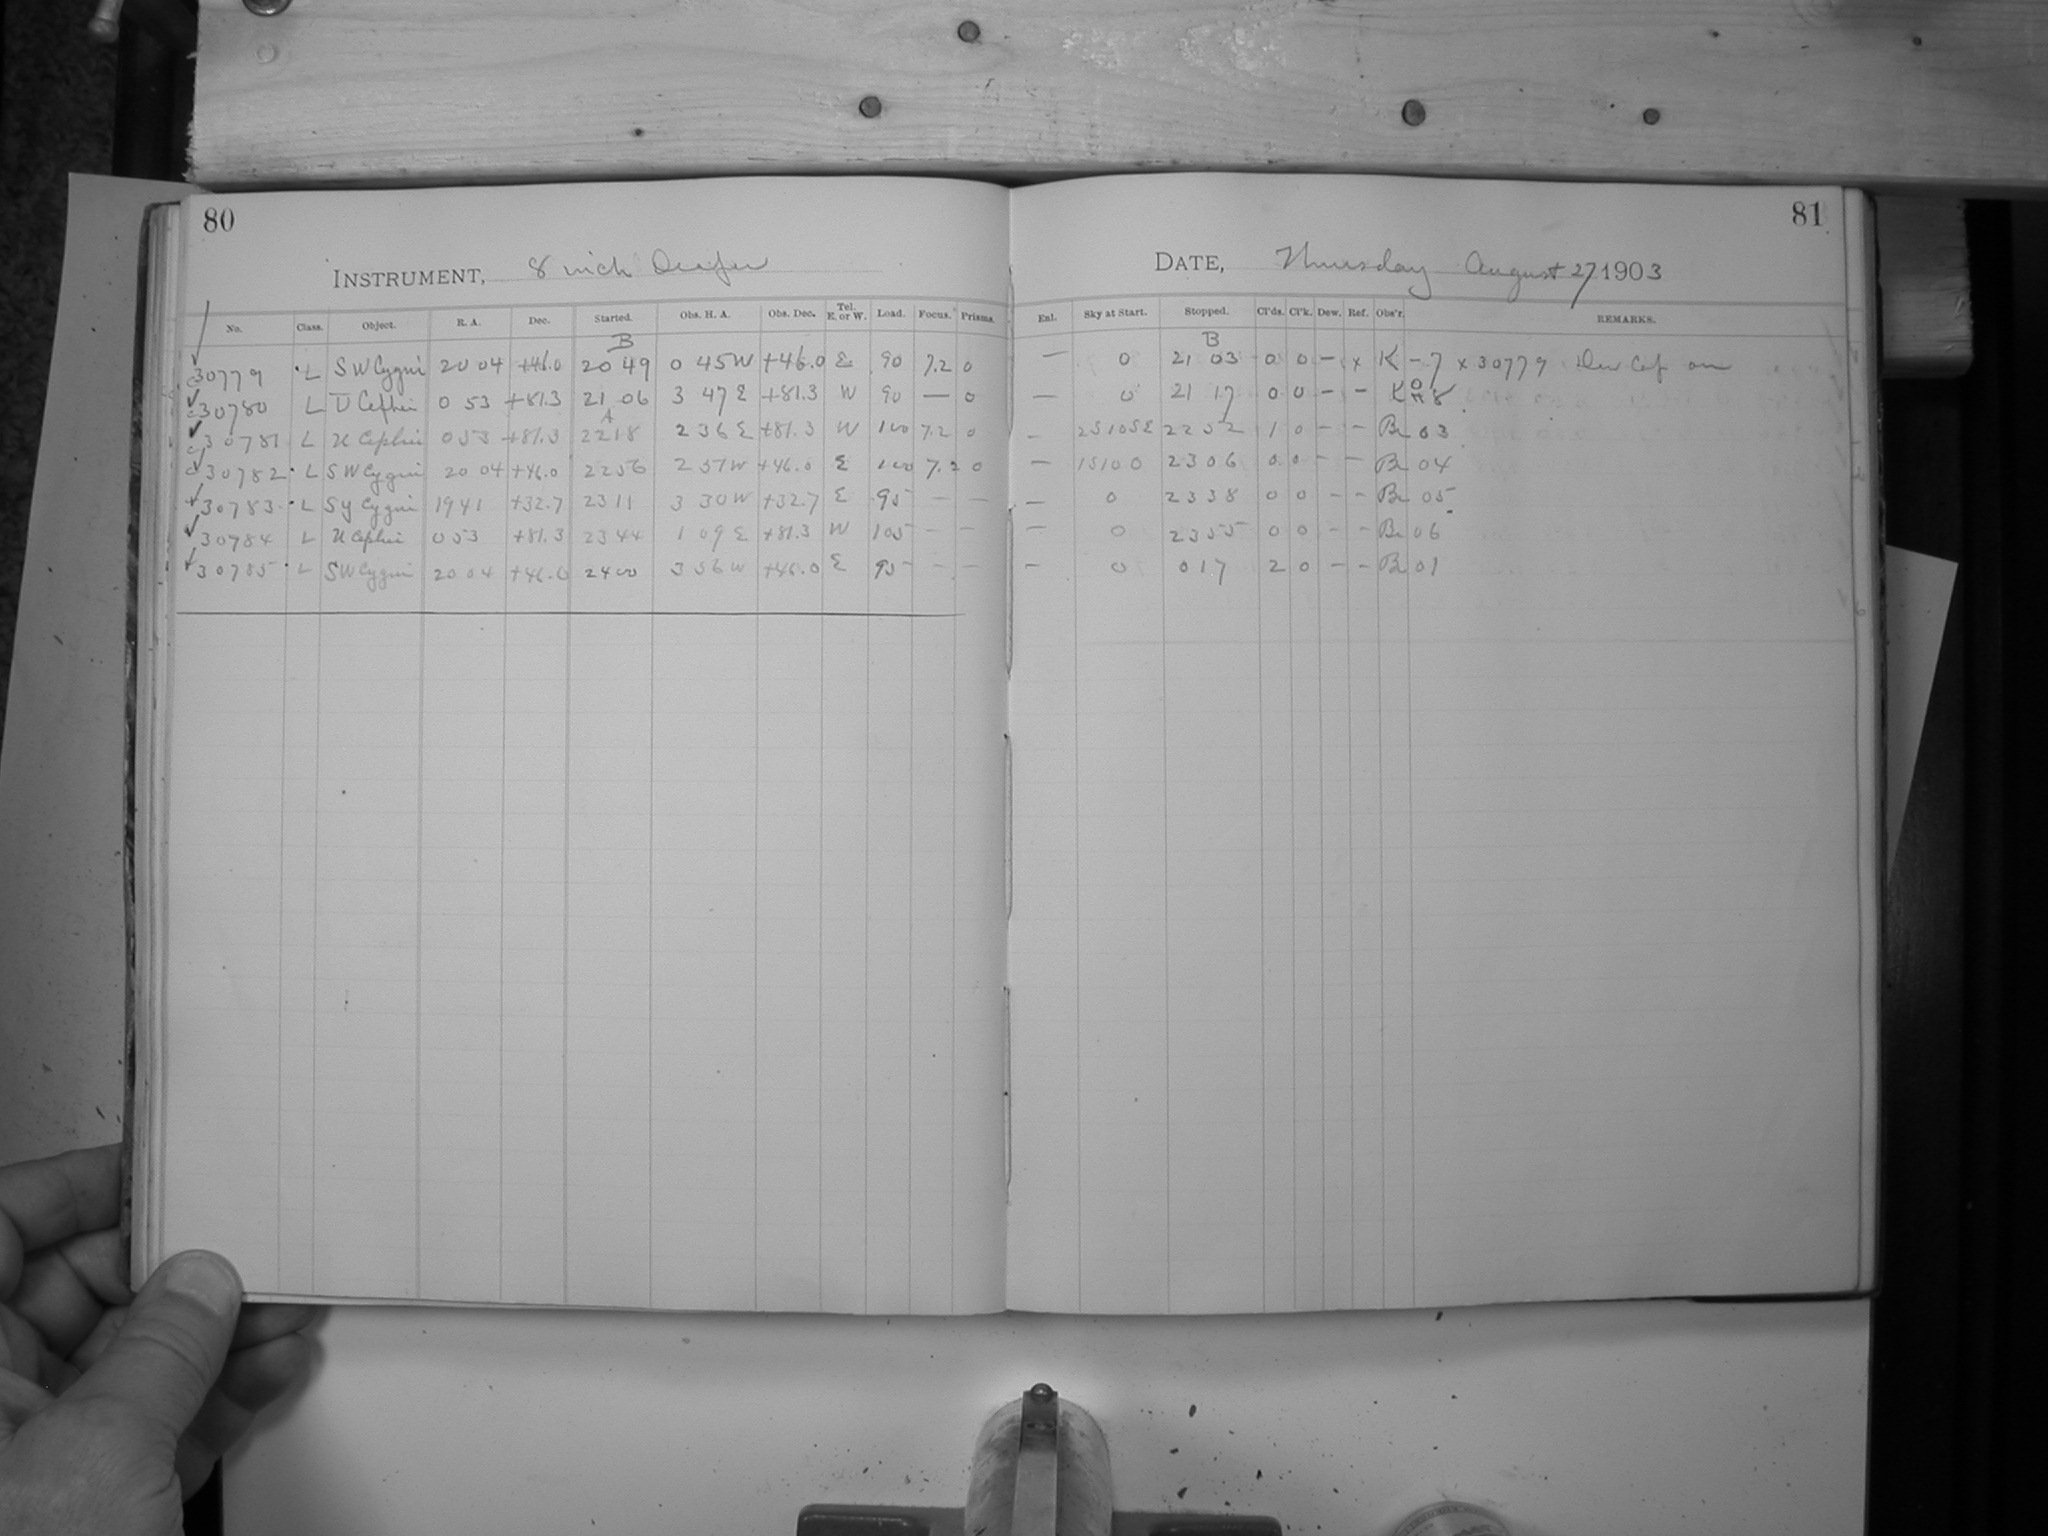 80
INSTRUMENT, 8 inch Draper
No. Class. Object. R. A. Dec. Started. Obs. H. A. Obs. Dec. Tel. E. or W. Load. Focus. Prisms.
B
30779 L SW Cygni 20 04 +46.0 20 49 0 45 W +46.0 E 90 7.2 0
30780 L U Cephei 0 53 +81.3 21 06 3 47 E +81.3 W 90 — 0
A
30781 L U Cephei 0 53 +81.3 22 18 2 36 E +81.3 W 100 7.2 0
30782 L SW Cygni 20 04 +46.0 22 56 2 57 W +46.0 E 100 7.2 0
30783 L SY Cygni 19 41 +32.7 23 11 3 30 W +32.7 E 95 — —
30784 L U Cephei 0 53 +81.3 23 44 1 09 E +81.3 W 105 — —
30785 L SW Cygni 20 04 +46.0 24 00 3 56 W +46.0 E 95 — —
81
DATE, Thursday August 27 1903
Enl. Sky at Start. Stopped. Cl'ds. Cl'k. Dew. Ref. Obs'r. REMARKS.
B
— 0 21 03 0 0 – x K – 7 x 30779 Dew Cap on
— 0 21 17 0 0 – – K 8
— 2S10SE 22 52 1 0 – – Br 03
— 1S100 23 06 0 0 – – Br 04
— 0 23 38 0 0 – – Br 05
— 0 23 55 0 0 – – Br 06
— 0 0 17 2 0 – – Br 01